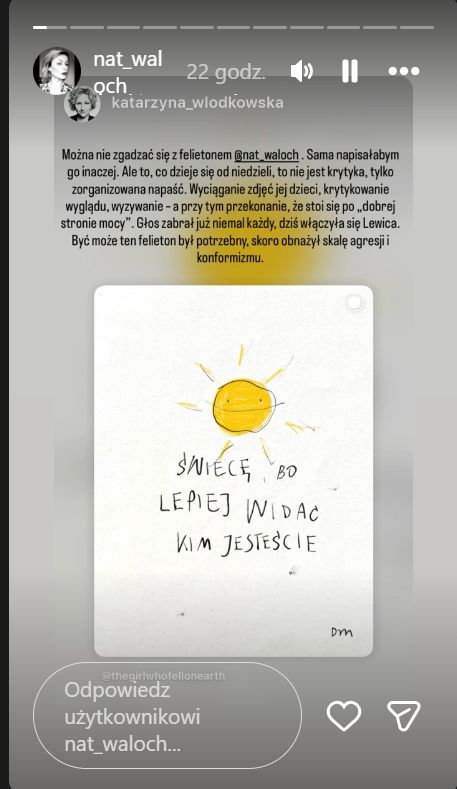 nat_wal
och
22 godz.
katarzyna_wlodkowska
Można nie zgadzać się z felietonem @nat_waloch . Sama napisałabym
go inaczej. Ale to, co dzieje się od niedzieli, to nie jest krytyka, tylko
zorganizowana napaść. Wyciąganie zdjęć jej dzieci, krytykowanie
wyglądu, wyzywanie – a przy tym przekonanie, że stoi się po „dobrej
stronie mocy”. Głos zabrał już niemal każdy, dziś włączyła się Lewica.
Być może ten felieton był potrzebny, skoro obnażył skalę agresji i
konformizmu.
ŚWIECĘ, BO
LEPIEJ WIDAĆ
KIM JESTEŚCIE
Dm
@thegirlwhofellonearth
Odpowiedz
użytkownikowi
nat_waloch...